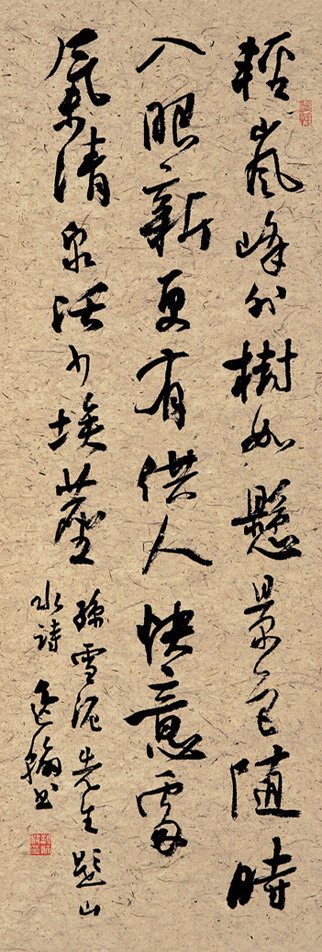 輕嵐峰外樹如懸景色隨時
入眼新更有供人快意處
氣清泉活少埃塵
孫雪泥先生題山
水詩 書